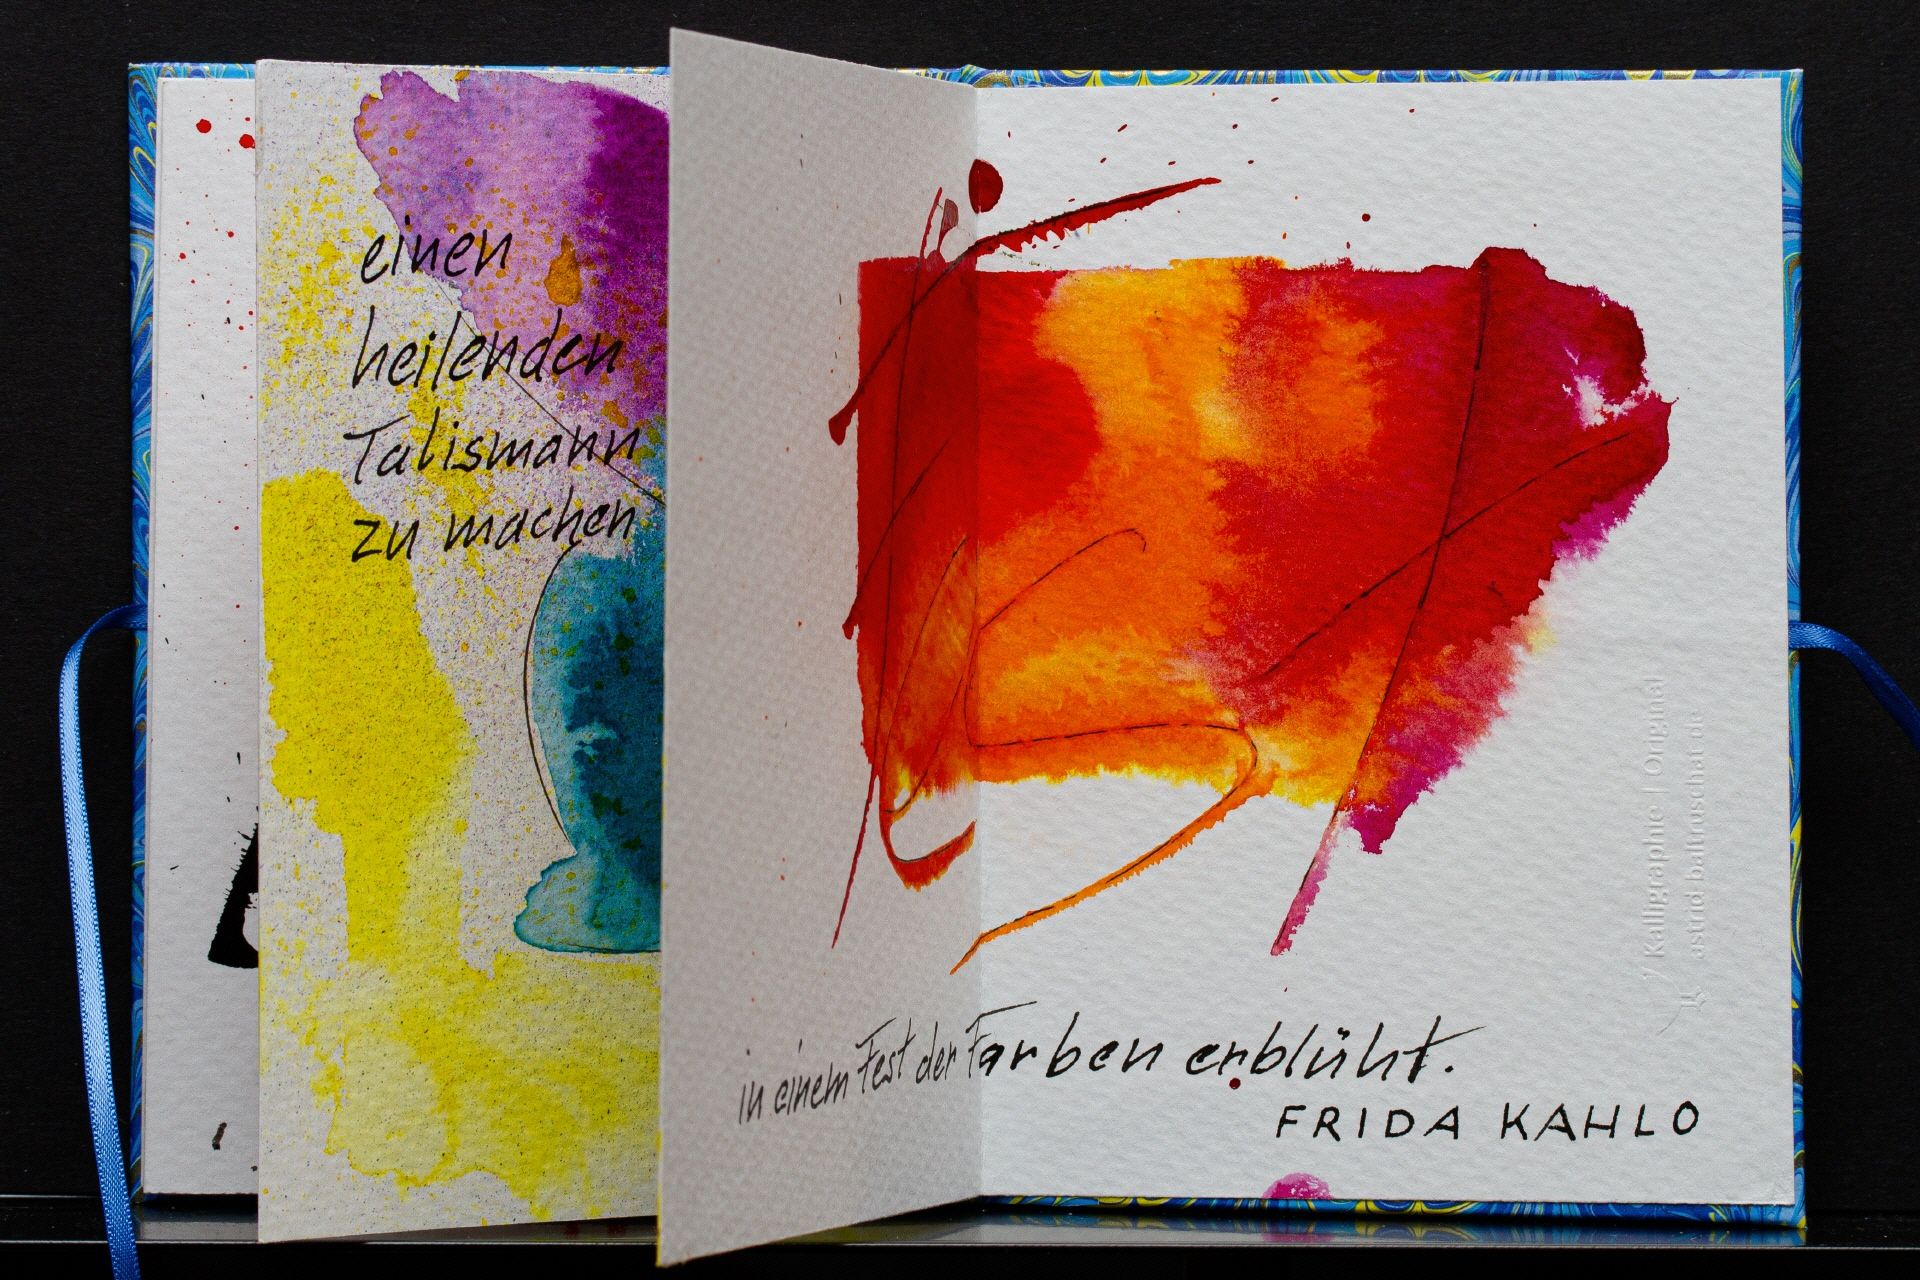 einen
heilenden
Talismann
zu machen
in einem Fest der Farben erblüht.
FRIDA KAHLO
Kalligraphie | Original
astrid-baltruschat.de